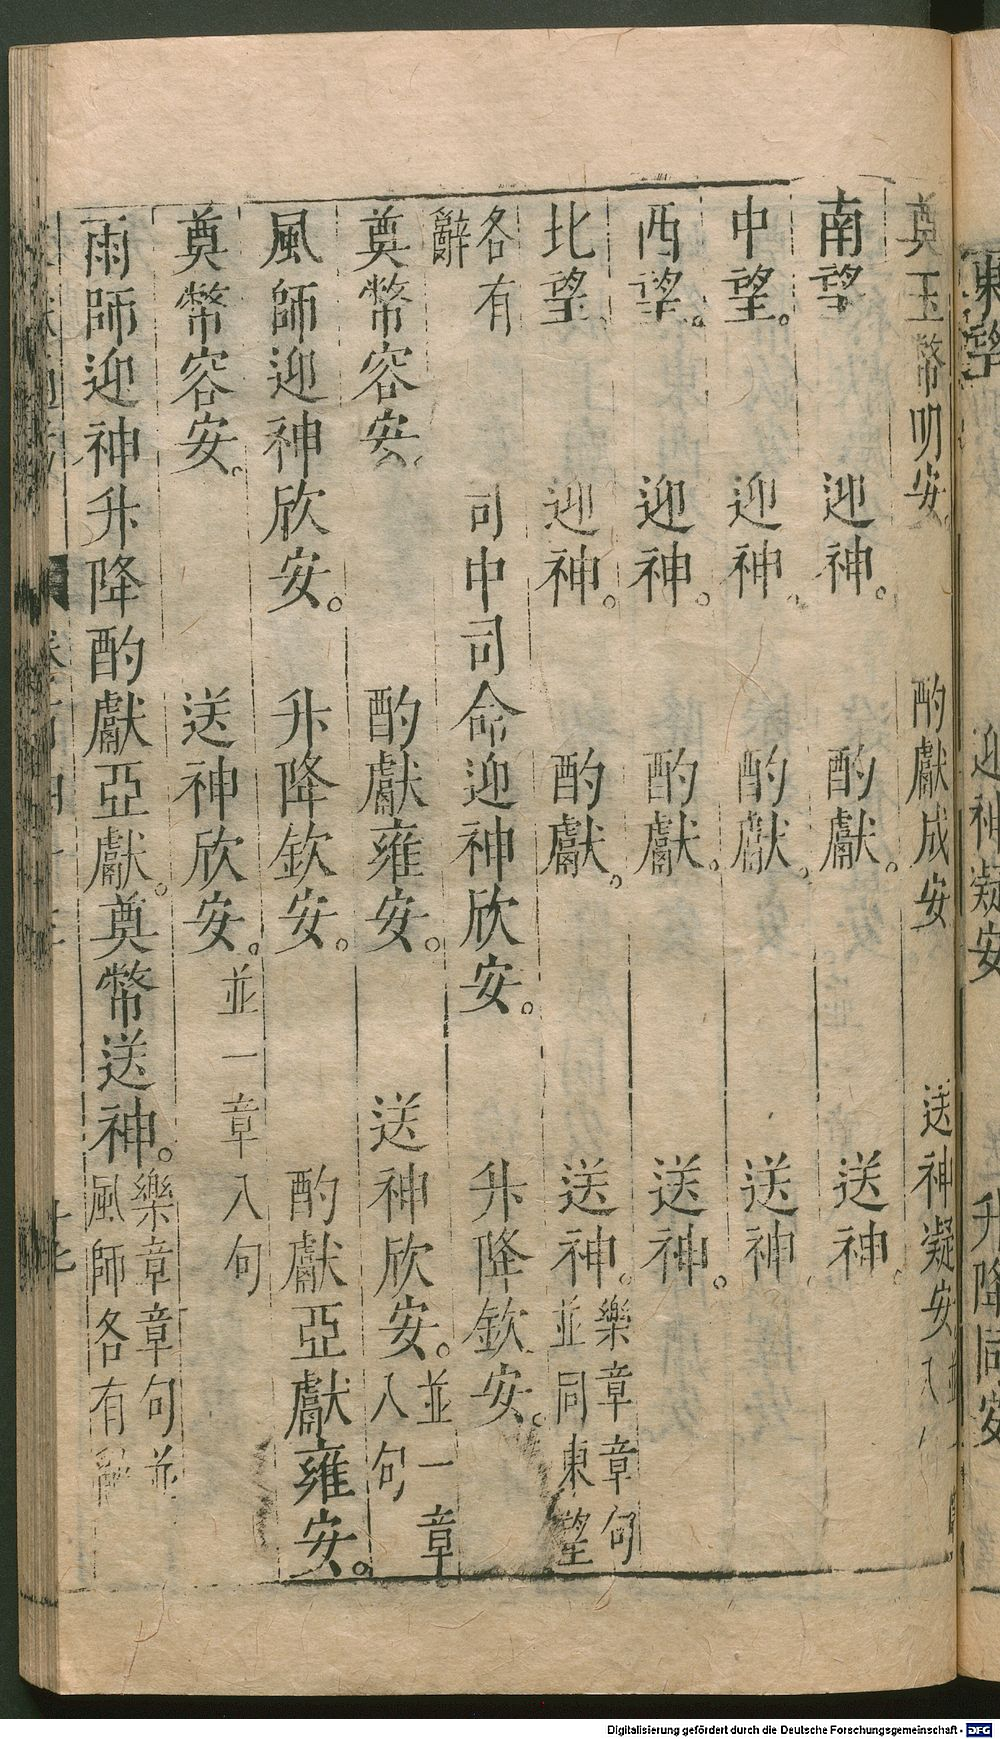 東望 迎神凝安 升降同安
奠玉幣明安。 酌獻成安 送神凝安
南望 迎神。 酌獻。 送神。
中望。 迎神。 酌獻。 送神。
西望。 迎神。 酌獻。 送神。
北望。 迎神。 酌獻。 送神。樂章章句
並同東望
各有
辭 司中司命迎神欣安。 升降欽安。
奠幣容安。 酌獻雍安。 送神欣安。並一章
八句
風師迎神欣安。 升降欽安。 酌獻亞獻雍安。
奠幣容安。 送神欣安。並一章八句
雨師迎神升降酌獻亞獻。奠幣送神。樂章章句並
風師各有辭
Digitalisierung gefördert durch die Deutsche Forschungsgemeinschaft - DFG